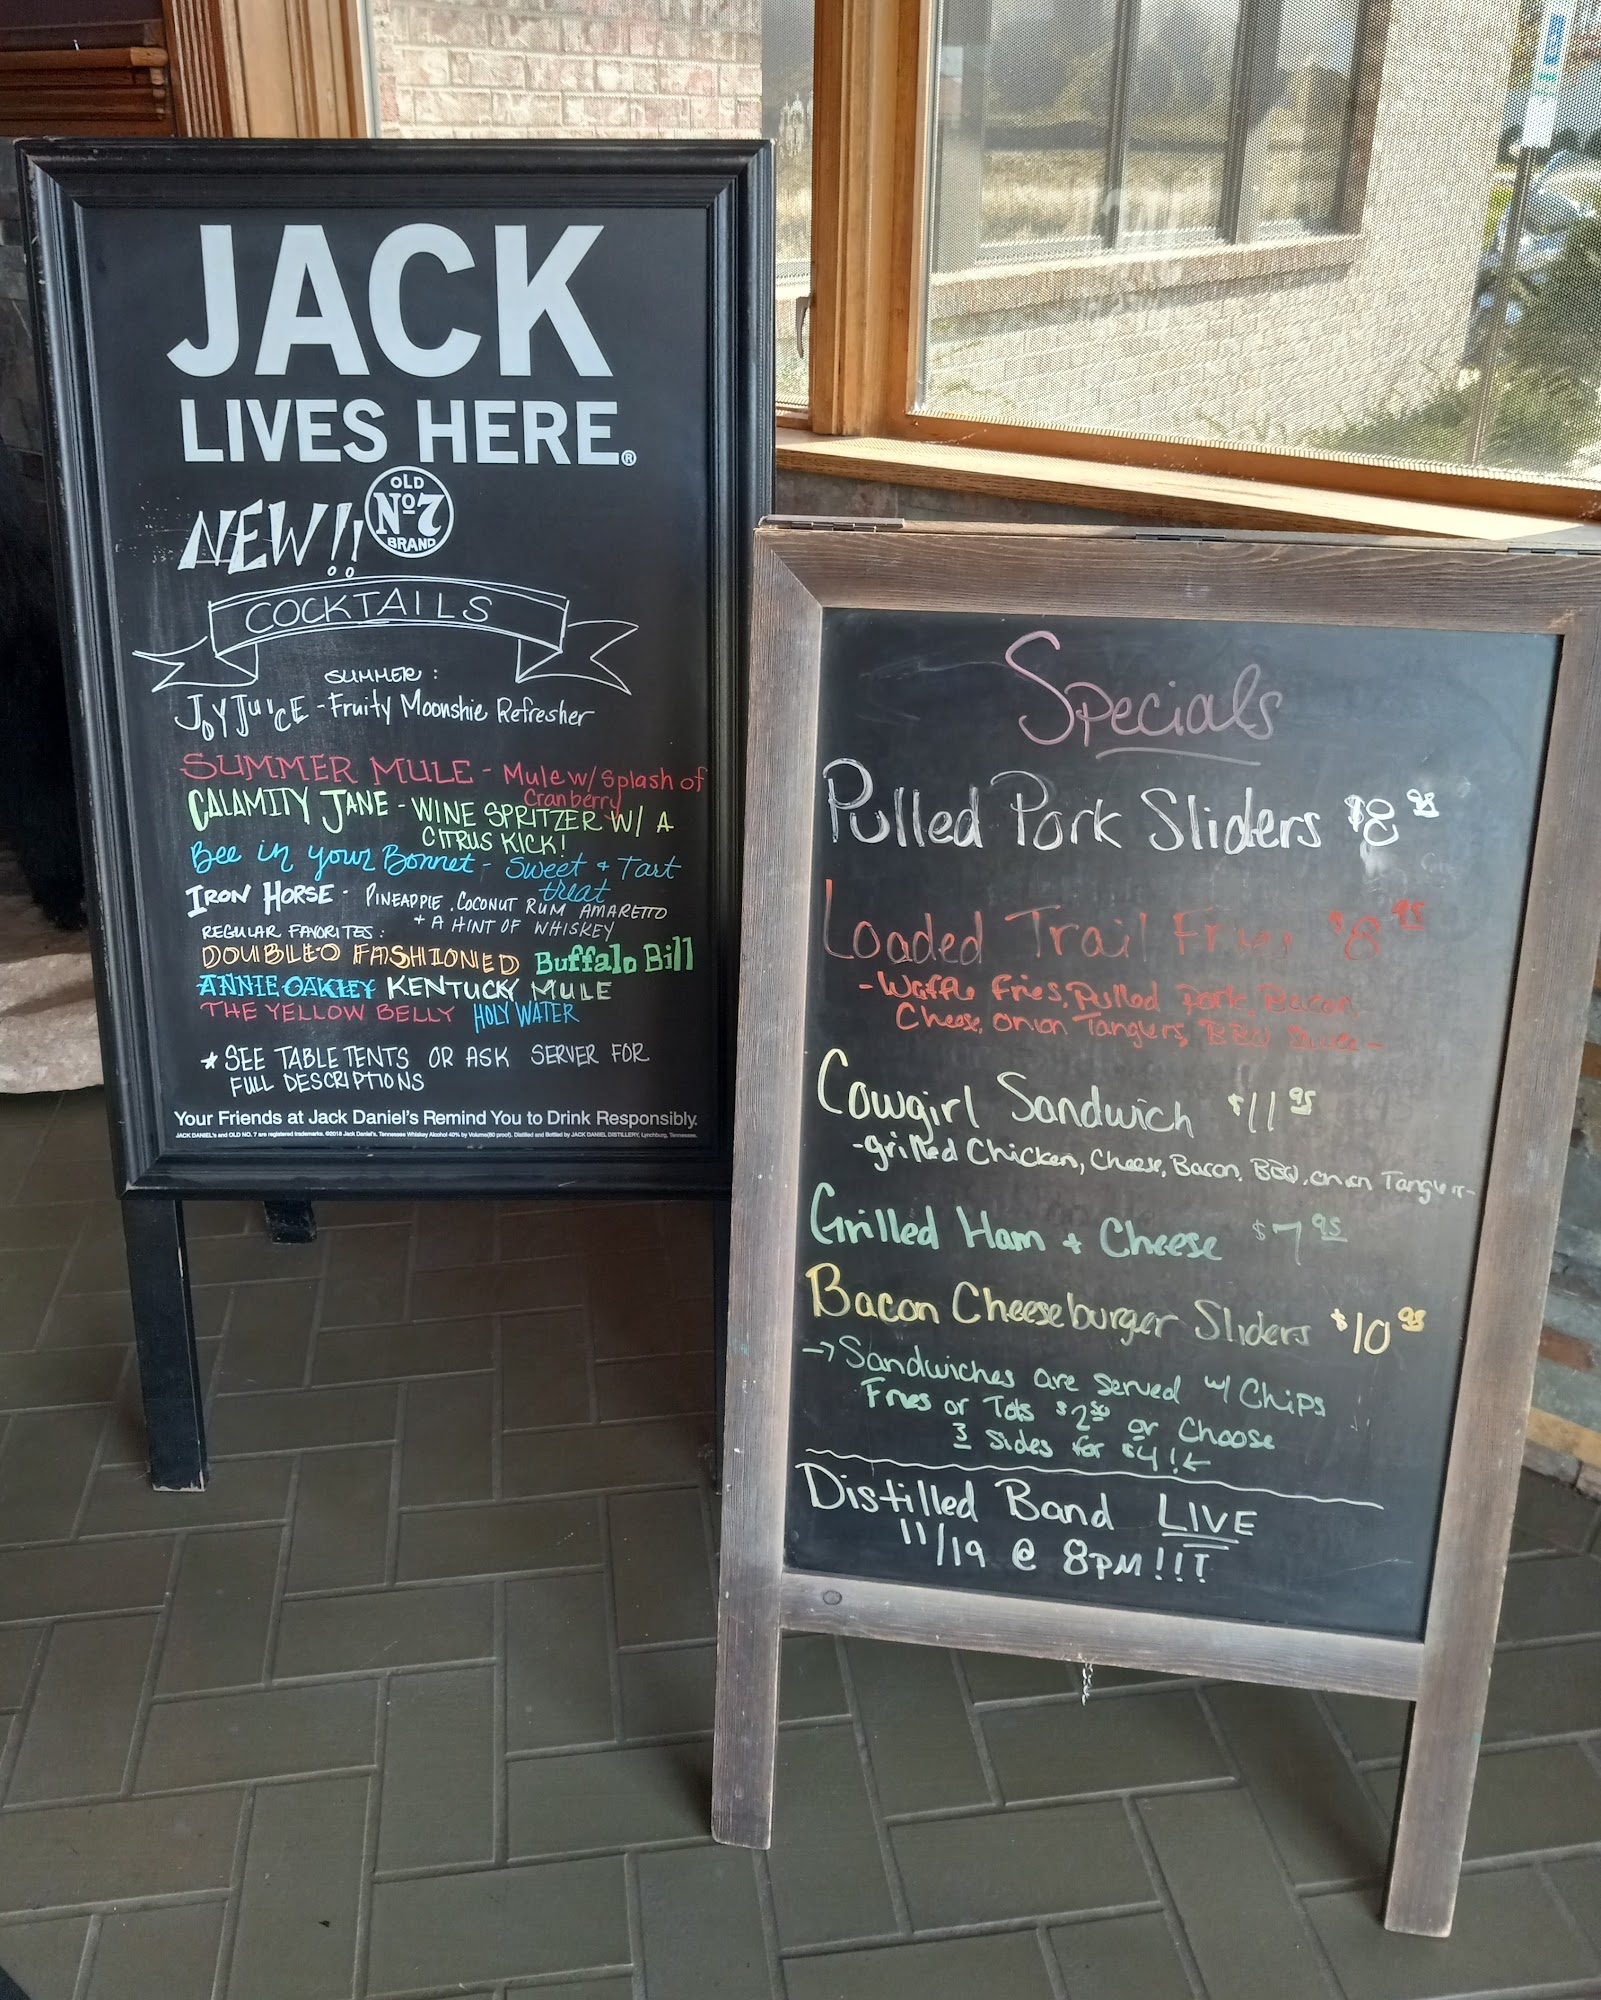 JACK
LIVES HERE®
NEW!!
OLD
No 7
BRAND
COCKTAILS
SUMMER:
JOYJUICE - Fruity Moonshie Refresher
SUMMER MULE - Mule w/ Splash of
Cranberry
CALAMITY JANE - WINE SPRITZER W/ A
CITRUS KICK!
Bee in your Bonnet - Sweet + Tart
treat
IRON HORSE - PINEAPPLE, COCONUT RUM AMARETTO
+ A HINT OF WHISKEY
REGULAR FAVORITES:
DOUBLE-O FASHIONED Buffalo Bill
ANNIE OAKLEY KENTUCKY MULE
THE YELLOW BELLY HOLY WATER
* SEE TABLE TENTS OR ASK SERVER FOR
FULL DESCRIPTIONS
Your Friends at Jack Daniel's Remind You to Drink Responsibly.
JACK DANIEL'S and OLD NO. 7 are registered trademarks. ©2018 Jack Daniel's. Tennessee Whiskey Alcohol 40% by Volume (80 proof). Distilled and Bottled by JACK DANIEL DISTILLERY, Lynchburg, Tennessee.
Specials
Pulled Pork Sliders $8 95
Loaded Trail Fries $8 95
- Waffle Fries, Pulled Pork, Bacon,
Cheese, onion Tanglers, BBQ Sauce -
Cowgirl Sandwich $11 95
- grilled Chicken, Cheese, Bacon, BBQ, onion Tangler -
Grilled Ham + Cheese $7 95
Bacon Cheeseburger Sliders $10 95
→ Sandwiches are served w/ Chips
Fries or Tots $2 50 or Choose
3 Sides for $4! ←
Distilled Band LIVE
11/19 @ 8PM!!!